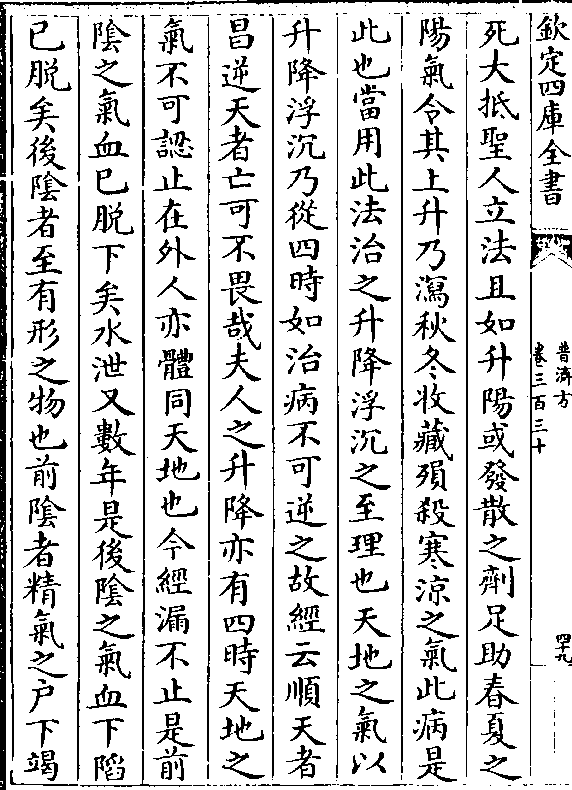 欽定四庫全書
普濟方
卷三百三十
四十九
死大抵聖人立法且如升陽或發散之劑足助春夏之
陽氣令其上升乃瀉秋冬收藏殞殺寒涼之氣此病是
此也當用此法治之升降浮沉之至理也天地之氣以
升降浮沉乃從四時如治病不可逆之故經云順天者
昌逆天者亡可不畏哉夫人之升降亦有四時天地之
氣不可認止在外人亦體同天地也今經漏不止是前
陰之氣血已脱下矣水泄又數年是後陰之氣血下陷
已脱矣後陰者至有形之物也前陰者精氣之户下竭